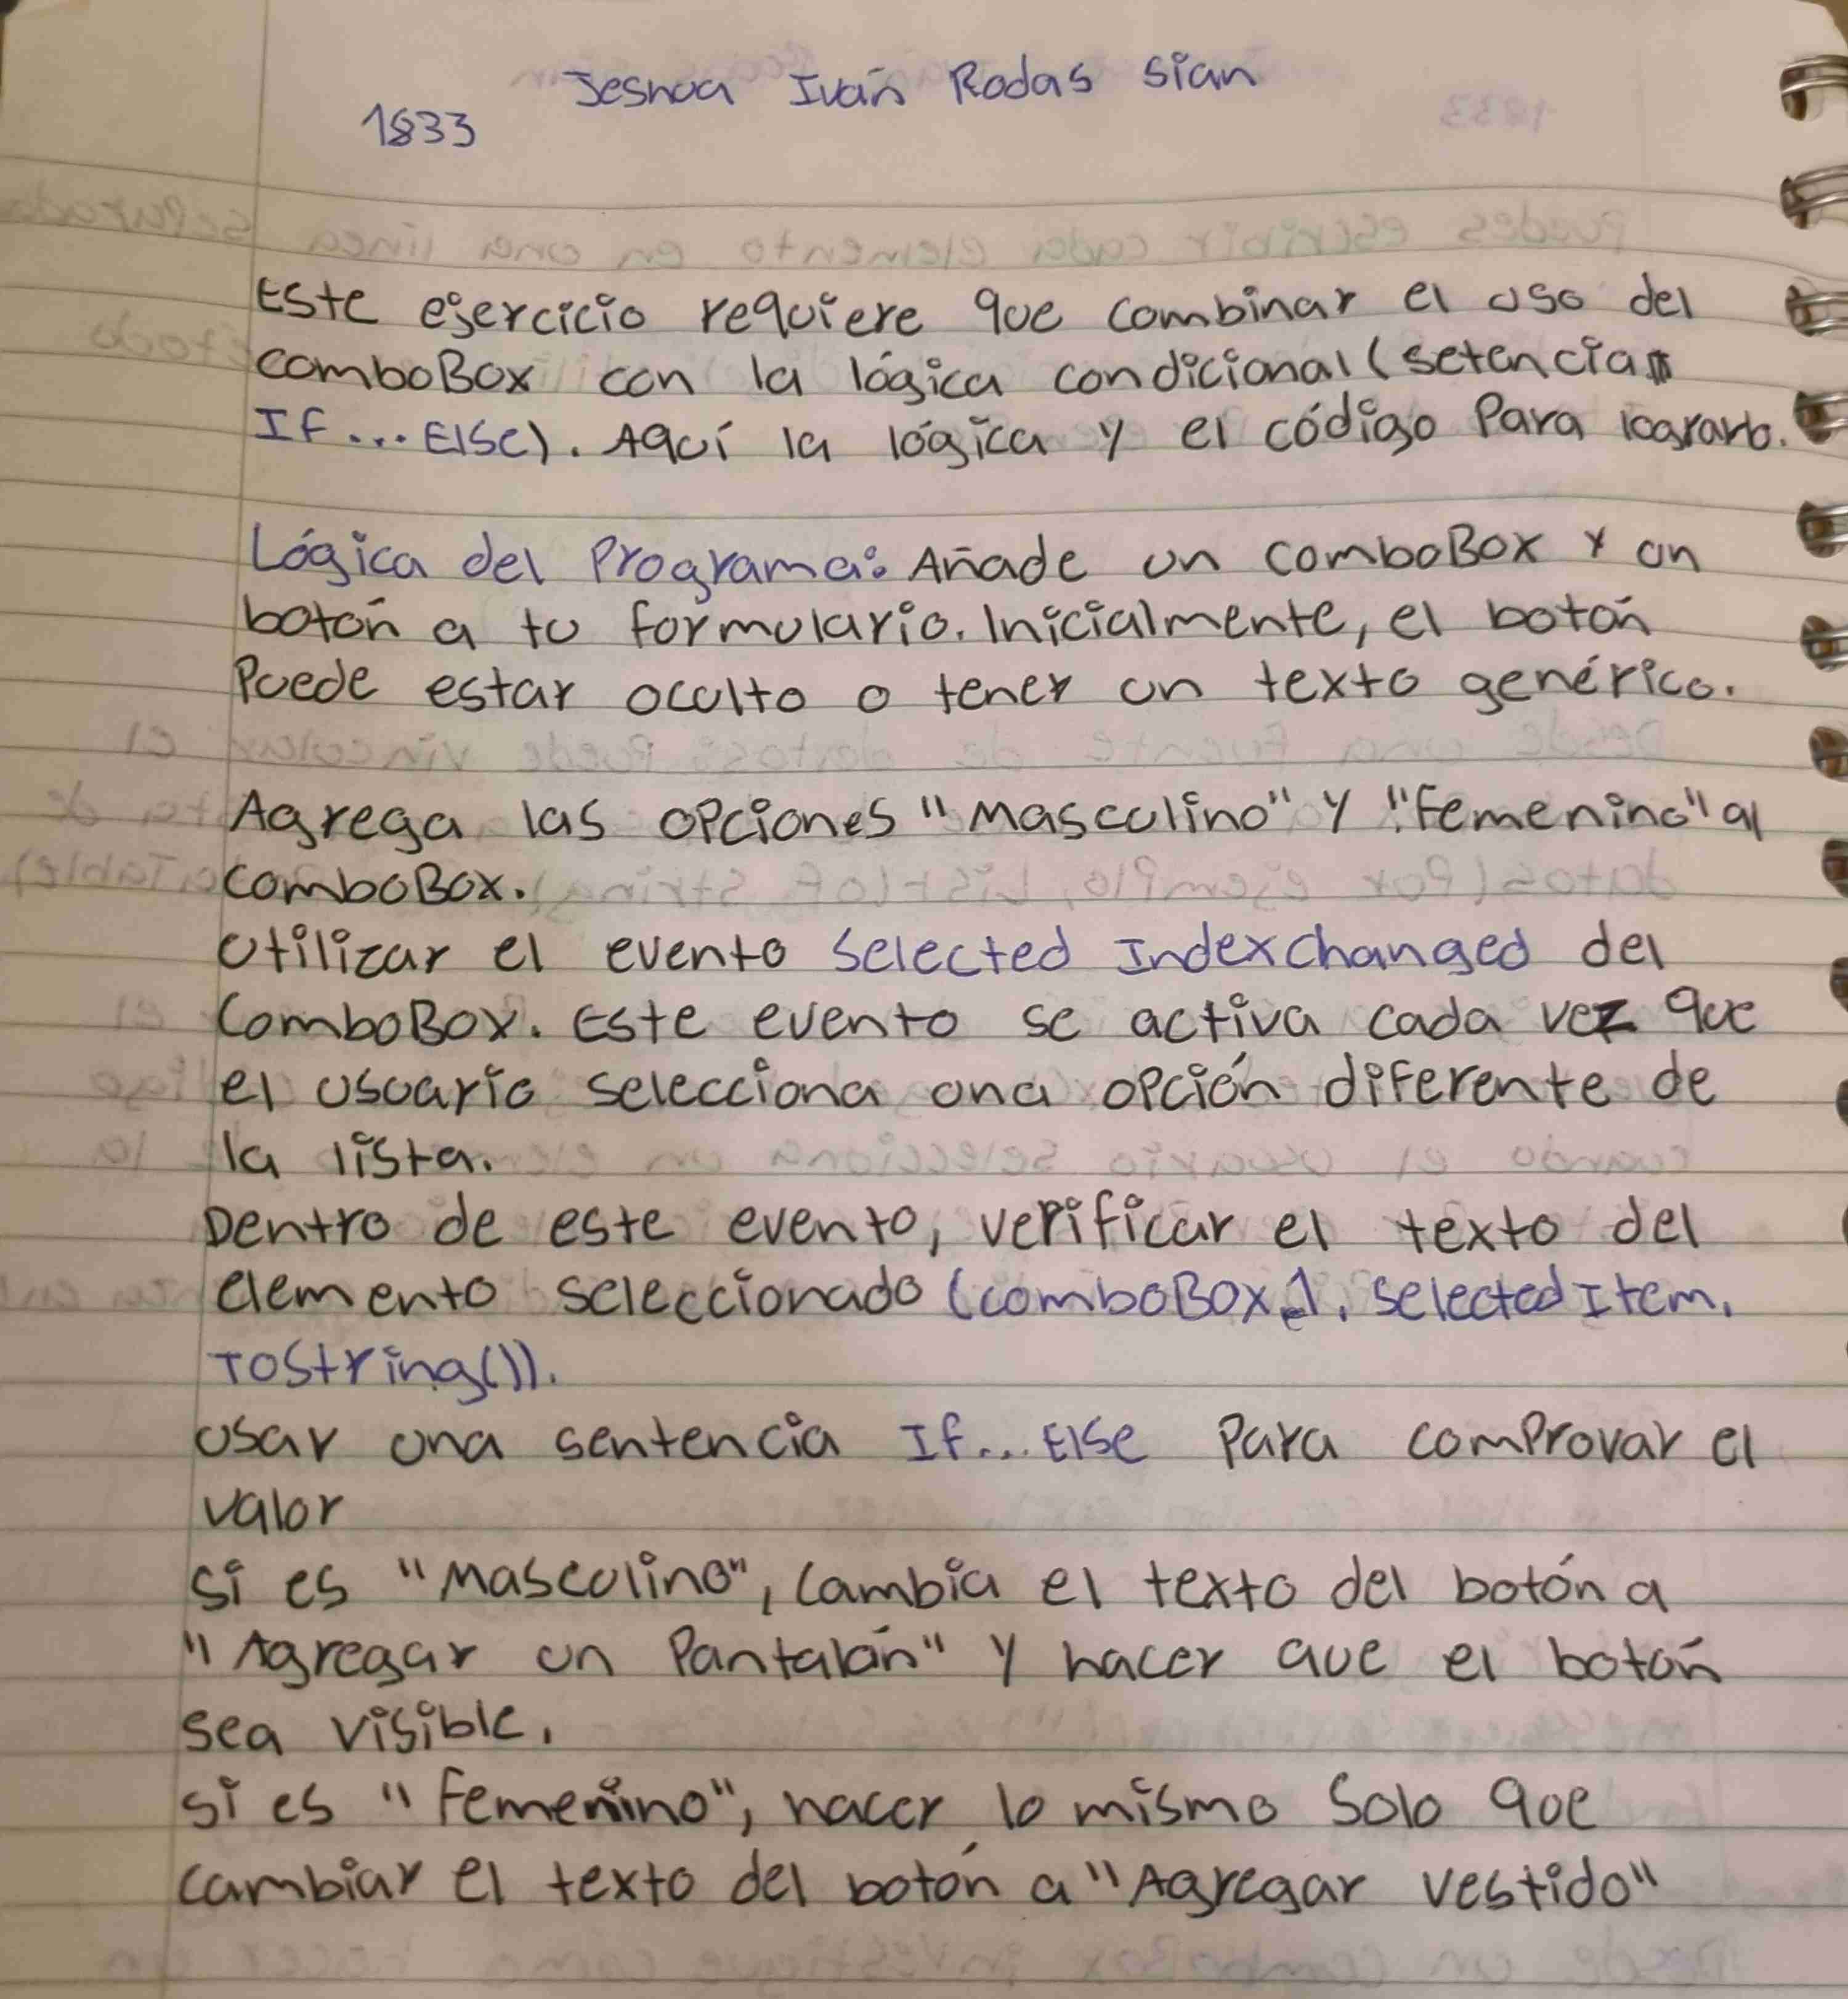 Jeshua Iván Rodas Sian
1833
Este ejercicio requiere que combinar el uso del
comboBox con la lógica condicional (setencia
If... Else). Aquí la lógica y el código Para lograrlo.
Lógica del Programa: Añade un comboBox y un
botón a tu formulario. Inicialmente, el botón
Puede estar oculto o tener un texto genérico.
Agrega las opciones "Masculino" y "Femenino" al
comboBox.
Utilizar el evento Selected Indexchanged del
ComboBox. Este evento se activa cada vez que
el usuario selecciona una opción diferente de
la lista.
Dentro de este evento, verificar el texto del
elemento seleccionado (comboBox1. Selected Item.
ToString()).
Usar una sentencia If... Else Para comprovar el
valor
Si es "Masculino", Cambia el texto del botón a
"Agregar un Pantalón" y hacer que el botón
sea visible.
Si es "Femenino", hacer lo mismo Solo que
cambiar el texto del botón a "Agregar vestido"